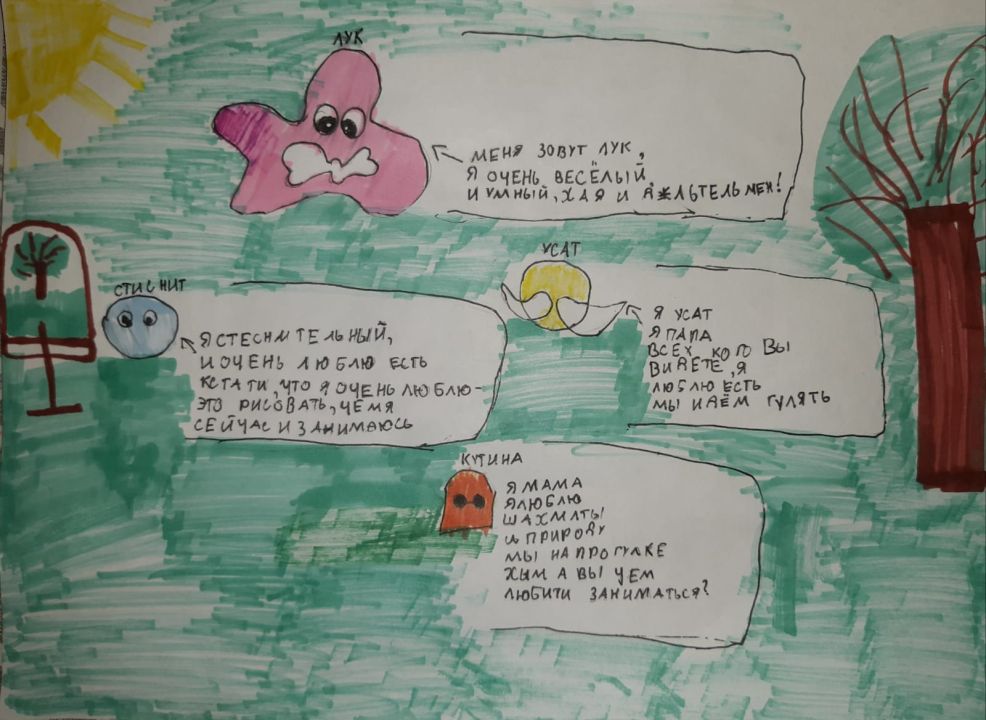 ЛУК
МЕНЯ ЗОВУТ ЛУК,
Я ОЧЕНЬ ВЕСЁЛЫЙ
И УМНЫЙ, ХАЯ И АЖЛЬТЕЛЬМЕН!
УСАТ
Я УСАТ
Я ПАПА
ВСЕХ КОГО ВЫ
ВИДЕТЕ, Я
ЛЮБЛЮ ЕСТЬ
МЫ ИДЁМ ГУЛЯТЬ
СТИСНИТ
Я СТЕСНИТЕЛЬНЫЙ,
И ОЧЕНЬ ЛЮБЛЮ ЕСТЬ
КСТАТИ, ЧТО Я ОЧЕНЬ ЛЮБЛЮ-
ЭТО РИСОВАТЬ, ЧЕМ Я
СЕЙЧАС И ЗАНИМАЮСЬ
КУТИНА
Я МАМА
Я ЛЮБЛЮ
ШАХМАТЫ
И ПРИРОДУ
МЫ НА ПРОГУЛКЕ
ХЫМ А ВЫ ЧЕМ
ЛЮБИТИ ЗАНИМАТЬСЯ?